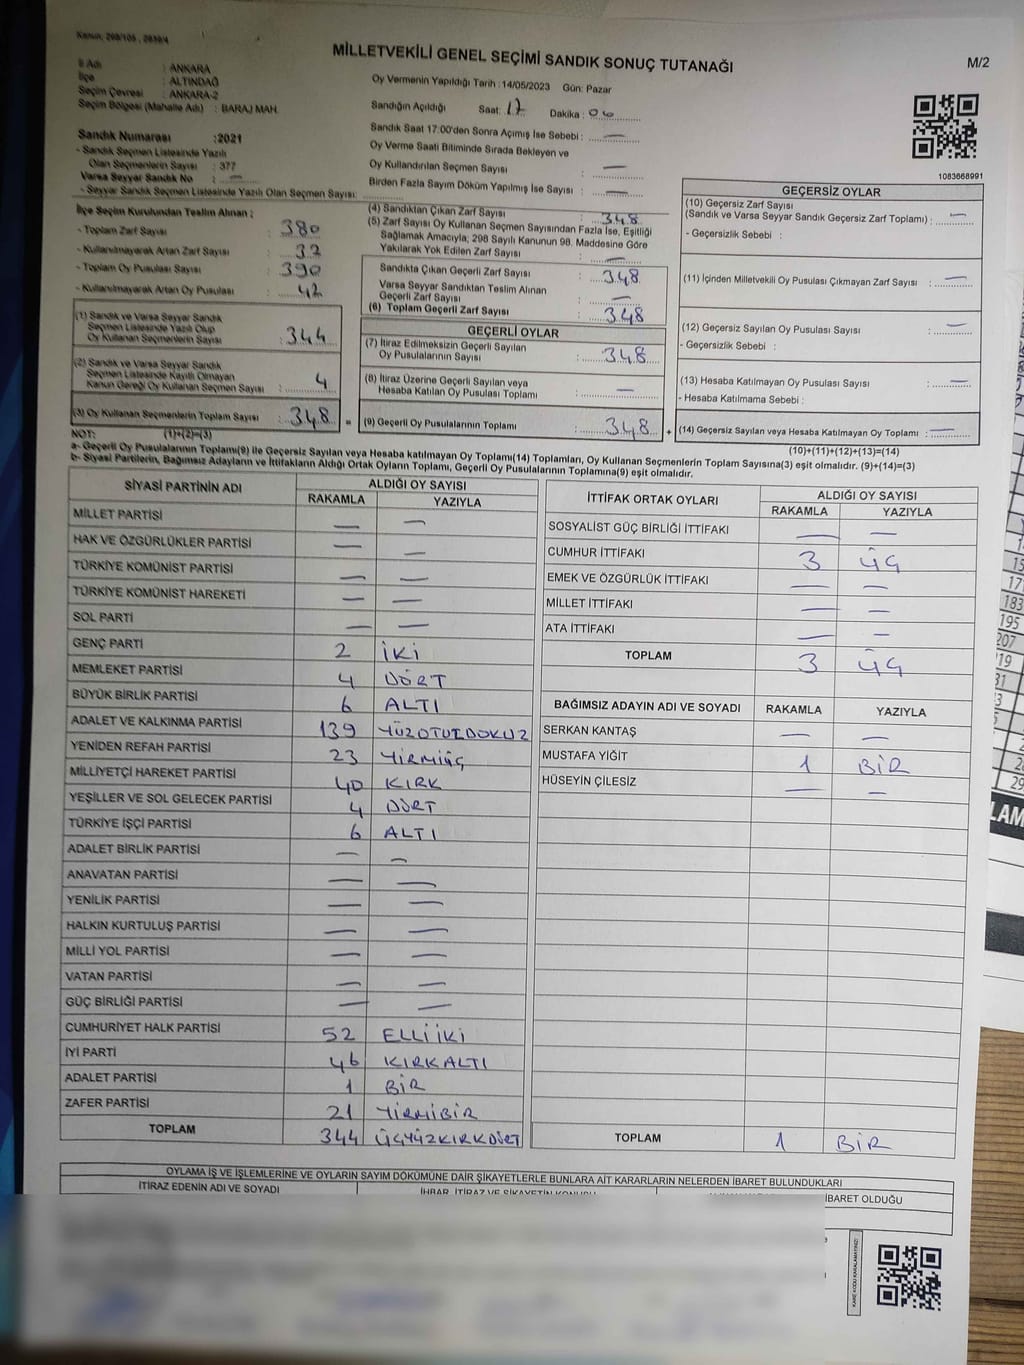 Kanun, 298/105 , 2839/4
MİLLETVEKİLİ GENEL SEÇİMİ SANDIK SONUÇ TUTANAĞI
M/2
İl Adı : ANKARA
İlçe : ALTINDAĞ
Seçim Çevresi : ANKARA-2
Seçim Bölgesi (Mahalle Adı) : BARAJ MAH.
Oy Vermenin Yapıldığı Tarih : 14/05/2023 Gün: Pazar
Sandığın Açıldığı Saat: 17 Dakika : 00
Sandık Saat 17:00'den Sonra Açımış İse Sebebi : —
Oy Verme Saati Bitiminde Sırada Bekleyen ve
Oy Kullandırılan Seçmen Sayısı : —
Birden Fazla Sayım Döküm Yapılmış İse Sayısı : —
1083668991
Sandık Numarası :2021
- Sandık Seçmen Listesinde Yazılı
Olan Seçmenlerin Sayısı : 377
Varsa Seyyar Sandık No : —
- Seyyar Sandık Seçmen Listesinde Yazılı Olan Seçmen Sayısı:
İlçe Seçim Kurulundan Teslim Alınan ;
- Toplam Zarf Sayısı : 380
- Kullanılmayarak Artan Zarf Sayısı : 32
- Toplam Oy Pusulası Sayısı : 390
- Kullanılmayarak Artan Oy Pusulası : 42
(1) Sandık ve Varsa Seyyar Sandık
Seçmen Listesinde Yazılı Olup
Oy Kullanan Seçmenlerin Sayısı : 344
(2) Sandık ve Varsa Seyyar Sandık
Seçmen Listesinde Kayıtlı Olmayan
Kanun Gereği Oy Kullanan Seçmen Sayısı : 4
(3) Oy Kullanan Seçmenlerin Toplam Sayısı : 348 =
(4) Sandıktan Çıkan Zarf Sayısı : 348
(5) Zarf Sayısı Oy Kullanan Seçmen Sayısından Fazla İse, Eşitliği
Sağlamak Amacıyla, 298 Sayılı Kanunun 98. Maddesine Göre
Yakılarak Yok Edilen Zarf Sayısı : —
Sandıkta Çıkan Geçerli Zarf Sayısı : 348
Varsa Seyyar Sandıktan Teslim Alınan
Geçerli Zarf Sayısı : —
(6) Toplam Geçerli Zarf Sayısı : 348
GEÇERLİ OYLAR
(7) İtiraz Edilmeksizin Geçerli Sayılan
Oy Pusulalarının Sayısı : 348
(8) İtiraz Üzerine Geçerli Sayılan veya
Hesaba Katılan Oy Pusulaları Toplamı : —
(9) Geçerli Oy Pusulalarının Toplamı : 348 +
GEÇERSİZ OYLAR
(10) Geçersiz Zarf Sayısı
(Sandık ve Varsa Seyyar Sandık Geçersiz Zarf Toplamı) : —
- Geçersizlik Sebebi :
(11) İçinden Milletvekili Oy Pusulası Çıkmayan Zarf Sayısı : —
(12) Geçersiz Sayılan Oy Pusulası Sayısı : —
- Geçersizlik Sebebi :
(13) Hesaba Katılmayan Oy Pusulası Sayısı : —
- Hesaba Katılmama Sebebi :
(14) Geçersiz Sayılan veya Hesaba Katılmayan Oy Toplamı : —
NOT: (1)+(2)=(3) (10)+(11)+(12)+(13)=(14)
a- Geçerli Oy Pusulaları Toplamı(9) ile Geçersiz Sayılan veya Hesaba katılmayan Oy Toplamı(14) Toplamları, Oy Kullanan Seçmenlerin Toplam Sayısına(3) eşit olmalıdır. (9)+(14)=(3)
b- Siyasi Partilerin, Bağımsız Adayların ve İttifakların Aldığı Ortak Oyların Toplamı, Geçerli Oy Pusulalarının Toplamına(9) eşit olmalıdır.
SİYASİ PARTİNİN ADI ALDIĞI OY SAYISI
RAKAMLA YAZIYLA
MİLLET PARTİSİ — —
HAK VE ÖZGÜRLÜKLER PARTİSİ — —
TÜRKİYE KOMÜNİST PARTİSİ — —
TÜRKİYE KOMÜNİST HAREKETİ — —
SOL PARTİ — —
GENÇ PARTİ 2 İKİ
MEMLEKET PARTİSİ 4 DÖRT
BÜYÜK BİRLİK PARTİSİ 6 ALTI
ADALET VE KALKINMA PARTİSİ 139 YÜZOTUZDOKUZ
YENİDEN REFAH PARTİSİ 23 YİRMİÜÇ
MİLLİYETÇİ HAREKET PARTİSİ 40 KIRK
YEŞİLLER VE SOL GELECEK PARTİSİ 4 DÖRT
TÜRKİYE İŞÇİ PARTİSİ 6 ALTI
ADALET BİRLİK PARTİSİ — —
ANAVATAN PARTİSİ — —
YENİLİK PARTİSİ — —
HALKIN KURTULUŞ PARTİSİ — —
MİLLİ YOL PARTİSİ — —
VATAN PARTİSİ — —
GÜÇ BİRLİĞİ PARTİSİ — —
CUMHURİYET HALK PARTİSİ 52 ELLİİKİ
İYİ PARTİ 46 KIRKALTI
ADALET PARTİSİ 1 BİR
ZAFER PARTİSİ 21 YİRMİBİR
TOPLAM 344 ÜÇYÜZKIRKDÖRT
İTTİFAK ORTAK OYLARI ALDIĞI OY SAYISI
RAKAMLA YAZIYLA
SOSYALİST GÜÇ BİRLİĞİ İTTİFAKI — —
CUMHUR İTTİFAKI 3 ÜÇ
EMEK VE ÖZGÜRLÜK İTTİFAKI — —
MİLLET İTTİFAKI — —
ATA İTTİFAKI — —
TOPLAM 3 ÜÇ
BAĞIMSIZ ADAYIN ADI VE SOYADI RAKAMLA YAZIYLA
SERKAN KANTAŞ — —
MUSTAFA YİĞİT 1 BİR
HÜSEYİN ÇİLESİZ — —
TOPLAM 1 BİR
OYLAMA İŞ VE İŞLEMLERİNE VE OYLARIN SAYIM DÖKÜMÜNE DAİR ŞİKAYETLERLE BUNLARA AİT KARARLARIN NELERDEN İBARET BULUNDUKLARI
İTİRAZ EDENİN ADI VE SOYADI İHBAR, İTİRAZ VE ŞİKAYETİN KONUSU İBARET OLDUĞU
KARE KODU KARALAMAYINIZ!
15
17
183
195
207
LAM